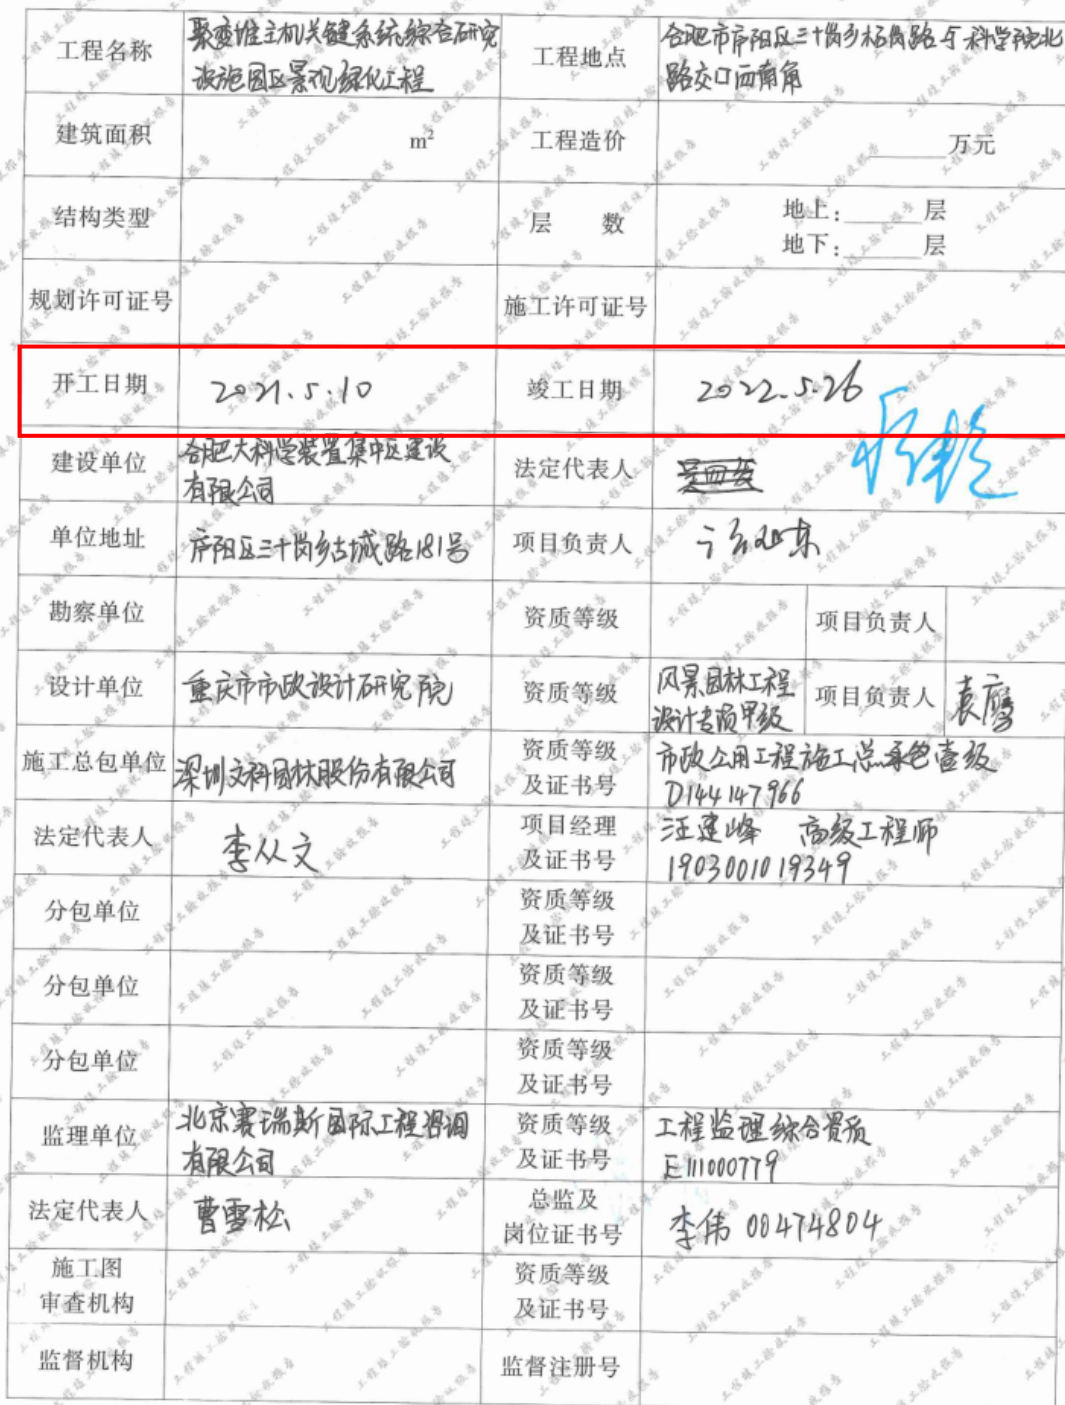 工程名称 聚变堆主机关键系统综合研究
设施园区景观绿化工程
工程地点 合肥市庐阳区三十岗乡 路与科学院北
路交口西南角
建筑面积 m²
工程造价 ______万元
结构类型
层 数 地上:______层
地下:______层
规划许可证号
施工许可证号
开工日期 2021.5.10
竣工日期 2022.5.26
建设单位 合肥大科学装置集中区建设
有限公司
法定代表人
单位地址 庐阳区三十岗乡古城路181号
项目负责人
勘察单位
资质等级
项目负责人
设计单位 重庆市市政设计研究院
资质等级 风景园林工程
设计专项甲级
项目负责人 袁鹰
施工总包单位 深圳文科园林股份有限公司
资质等级
及证书号
市政公用工程施工总承包壹级
D144147966
法定代表人 李从文
项目经理
及证书号
汪建峰 高级工程师
1903001019349
分包单位
资质等级
及证书号
分包单位
资质等级
及证书号
分包单位
资质等级
及证书号
监理单位 北京赛瑞斯国际工程咨询
有限公司
资质等级
及证书号
工程监理综合资质
E111000779
法定代表人 曹雪松
总监及
岗位证书号
李伟 00474804
施工图
审查机构
资质等级
及证书号
监督机构
监督注册号
工程竣工验收报告